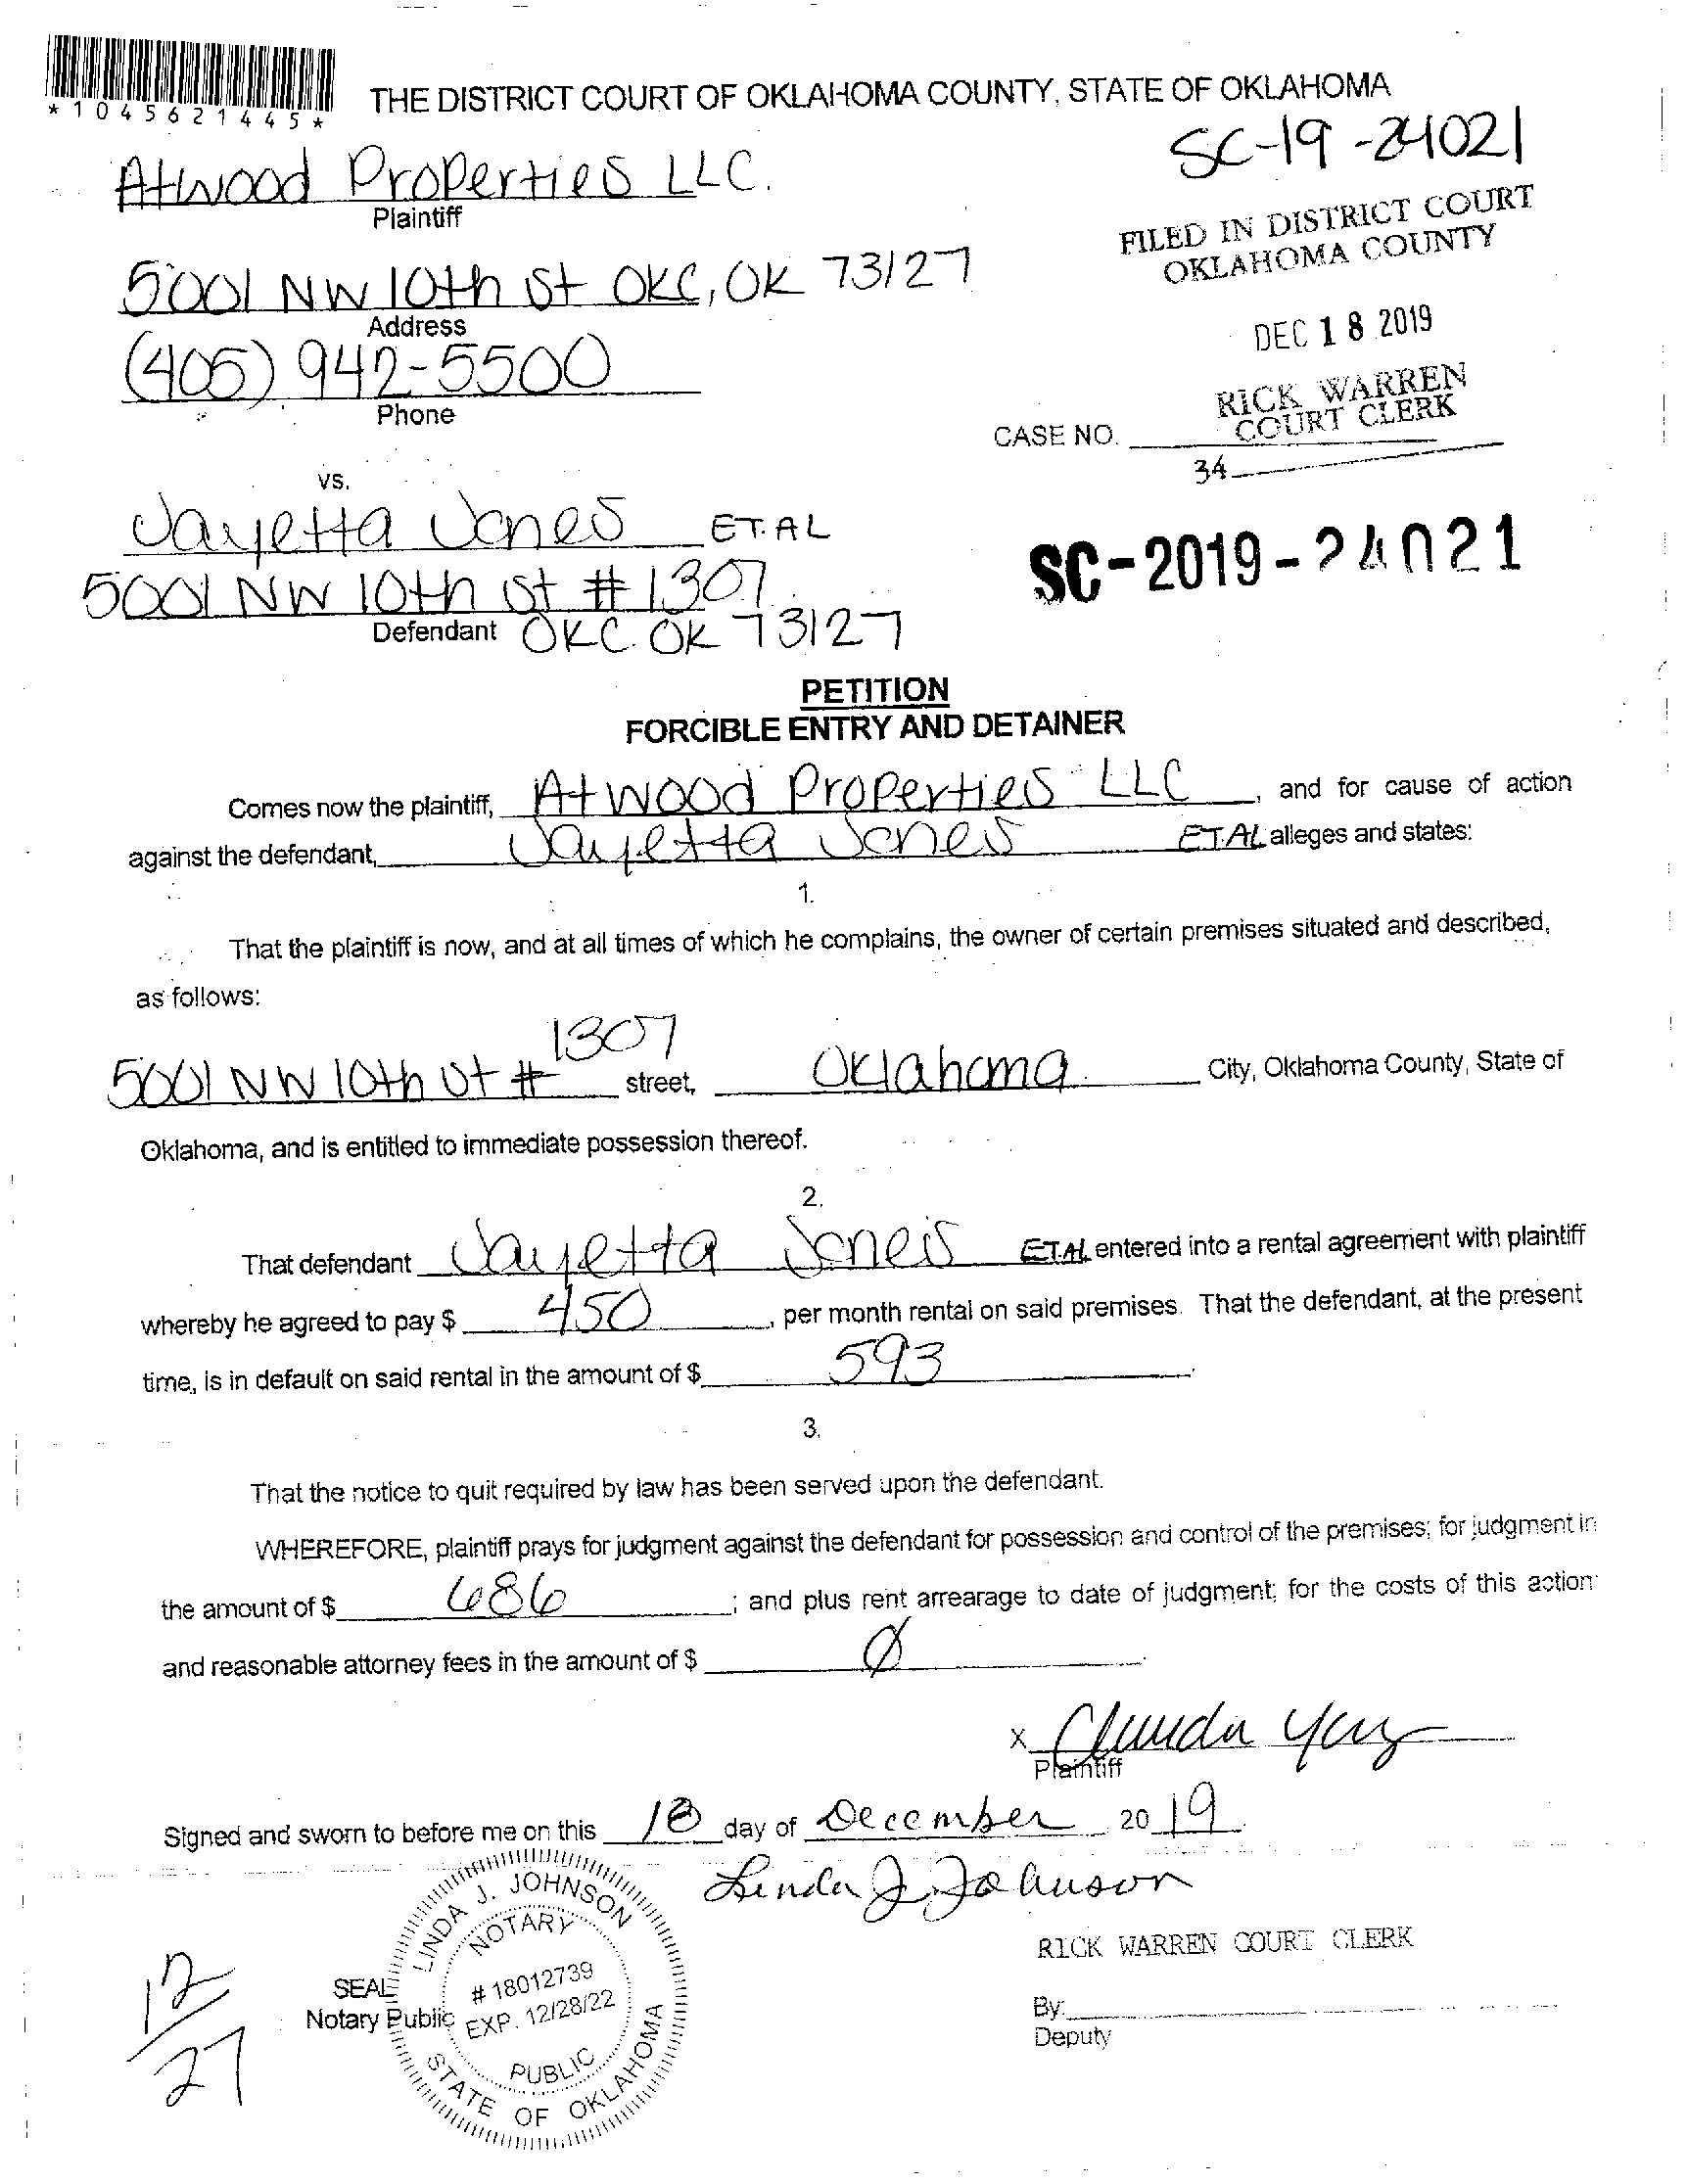 *1045621445*
THE DISTRICT COURT OF OKLAHOMA COUNTY, STATE OF OKLAHOMA
SC-19-24021
Atwood Properties LLC.
Plaintiff
FILED IN DISTRICT COURT
OKLAHOMA COUNTY
5001 NW 10th St OKC, OK 73127
Address
DEC 18 2019
(405) 942-5500
Phone
RICK WARREN
COURT CLERK
CASE NO.
34
vs.
Jayetta Jones ET.AL
SC-2019-24021
5001 NW 10th St # 1307
Defendant OKC. OK 73127
PETITION
FORCIBLE ENTRY AND DETAINER
Comes now the plaintiff, Atwood Properties LLC, and for cause of action
against the defendant, Jayetta Jones ET.AL alleges and states:
1.
That the plaintiff is now, and at all times of which he complains, the owner of certain premises situated and described,
as follows:
5001 NW 10th St # 1307 street, Oklahoma City, Oklahoma County, State of
Oklahoma, and is entitled to immediate possession thereof.
2.
That defendant Jayetta Jones ET.AL entered into a rental agreement with plaintiff
whereby he agreed to pay $ 450, per month rental on said premises. That the defendant, at the present
time, is in default on said rental in the amount of $ 593.
3.
That the notice to quit required by law has been served upon the defendant.
WHEREFORE, plaintiff prays for judgment against the defendant for possession and control of the premises; for judgment in
the amount of $ 686; and plus rent arrearage to date of judgment; for the costs of this action
and reasonable attorney fees in the amount of $ Ø.
x
Plaintiff
Signed and sworn to before me on this 18 day of December 2019
Linda J. Johnson
LINDA J. JOHNSON
NOTARY
# 18012739
EXP. 12/28/22
PUBLIC
STATE OF OKLAHOMA
SEAL
Notary Public
RICK WARREN COURT CLERK
By:
Deputy
12
27